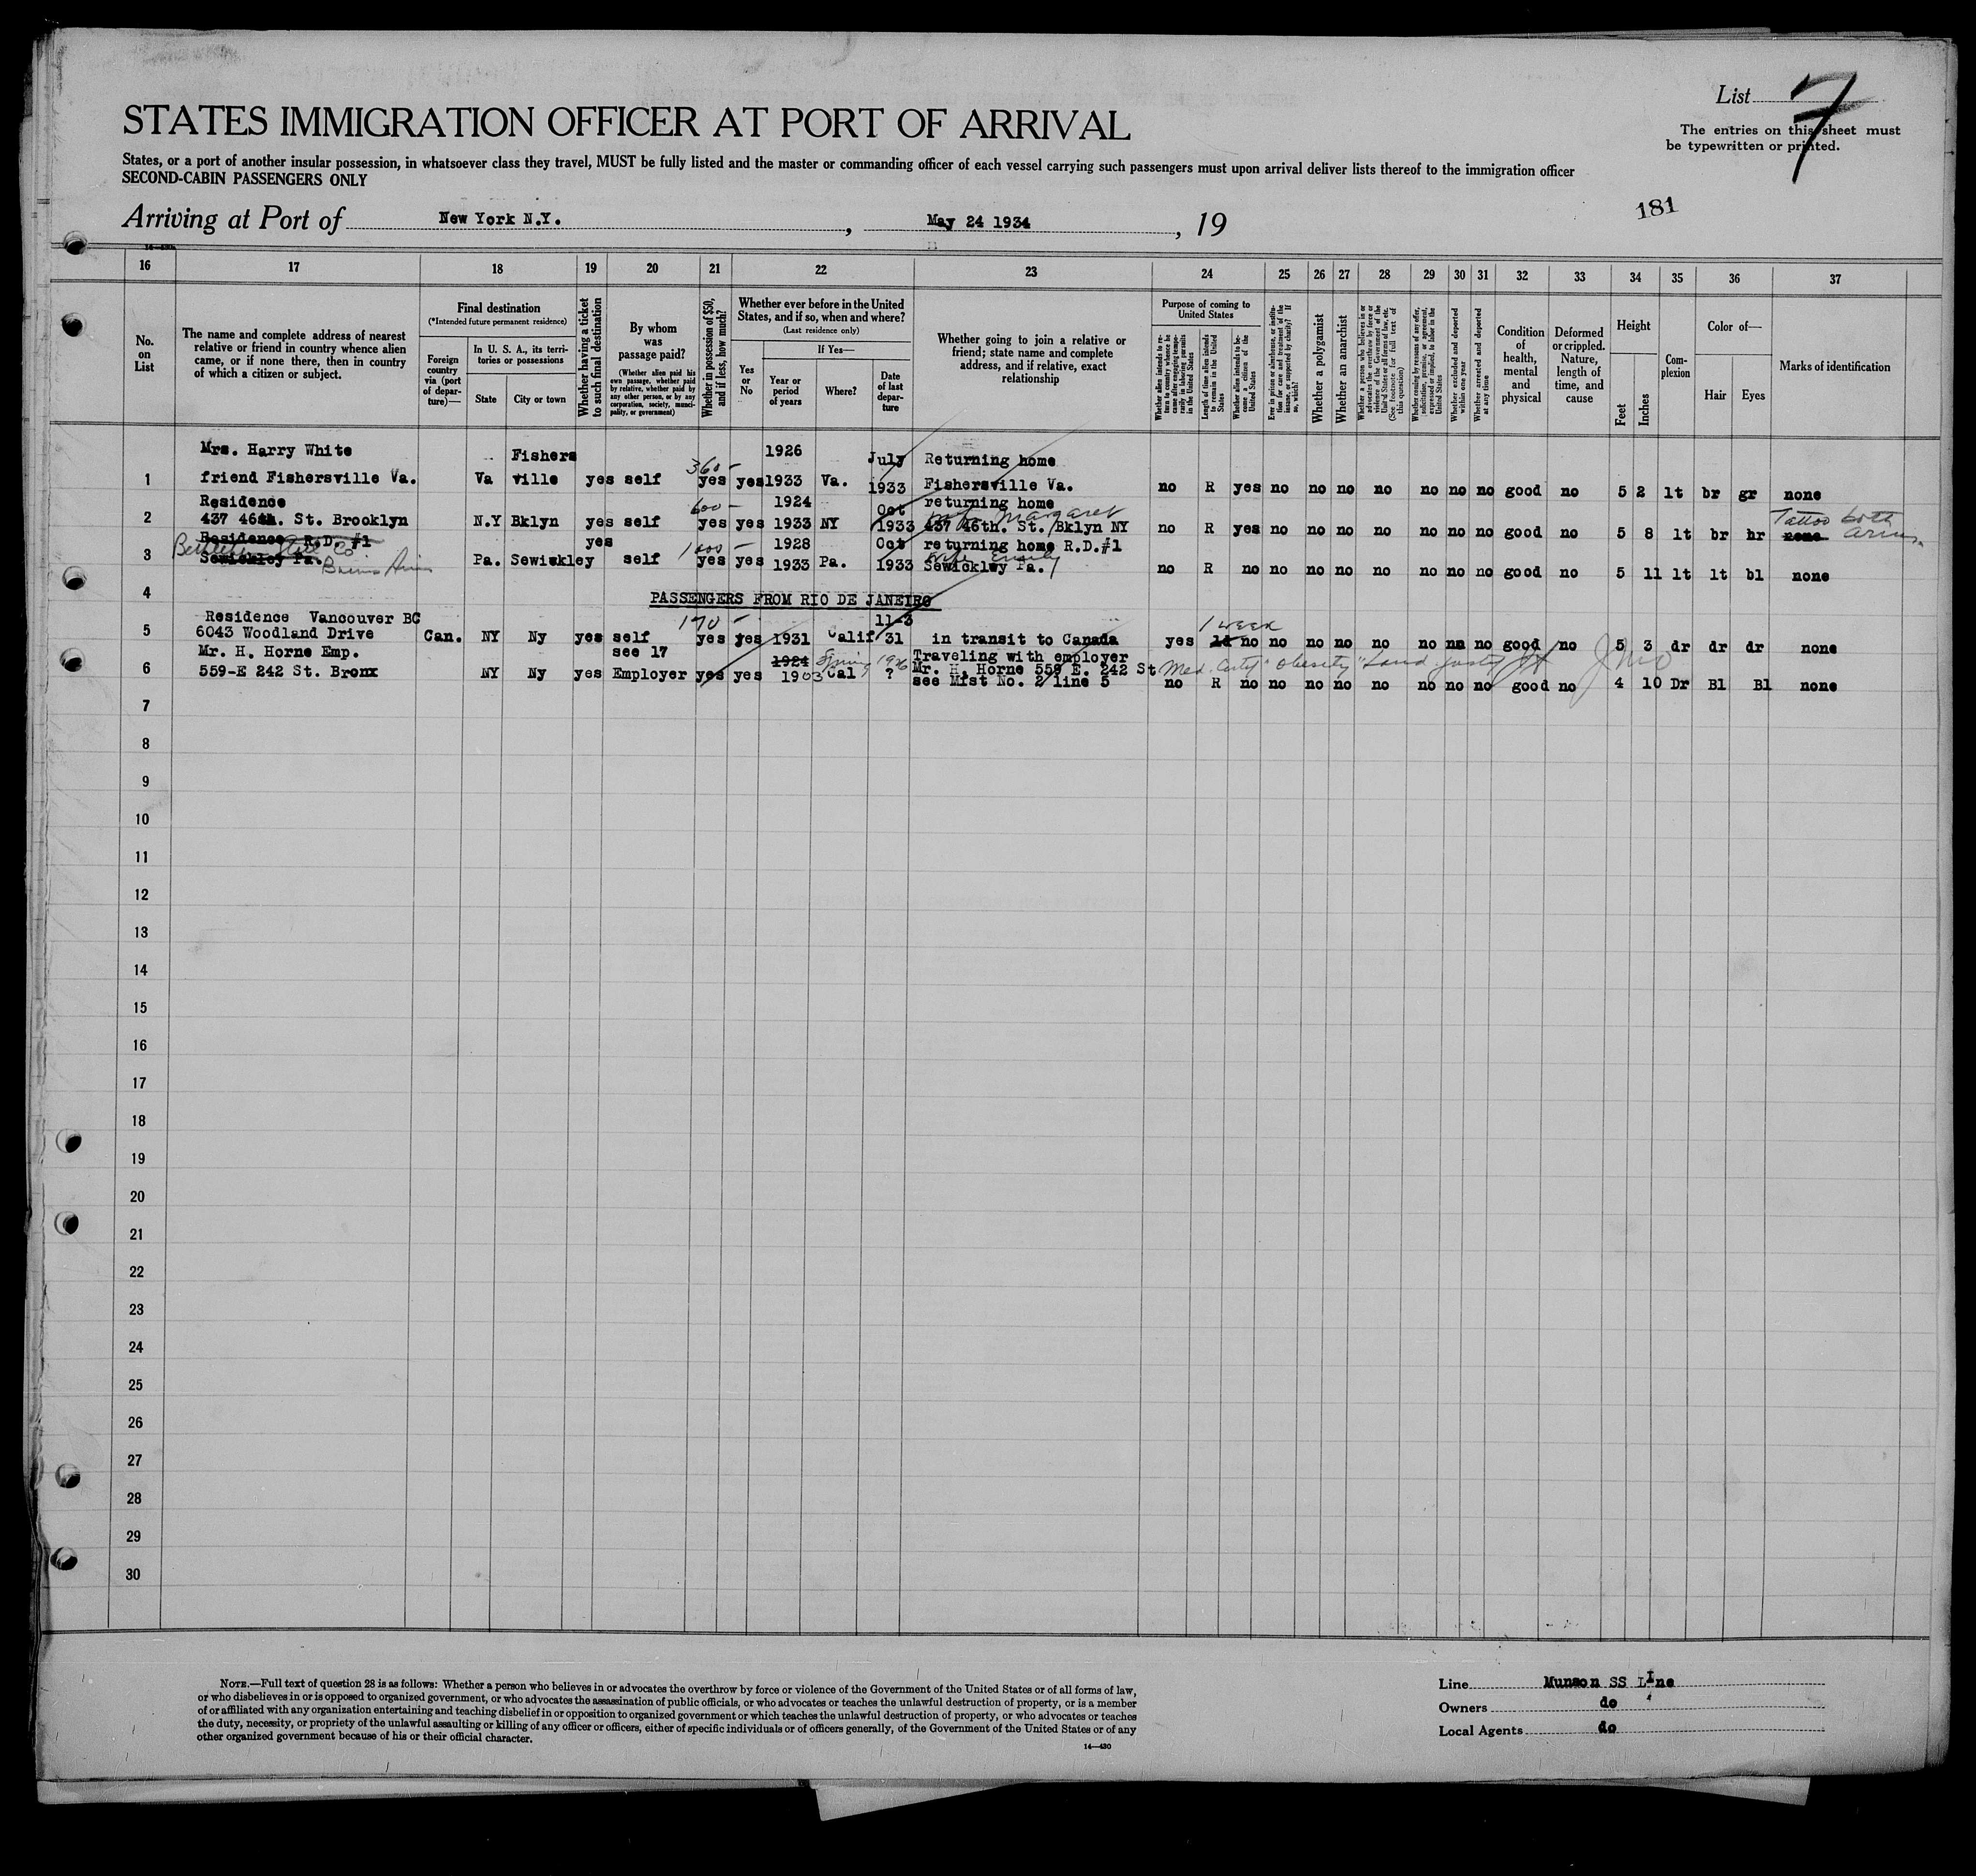 List 7
The entries on this sheet must
be typewritten or printed.
STATES IMMIGRATION OFFICER AT PORT OF ARRIVAL
States, or a port of another insular possession, in whatsoever class they travel, MUST be fully listed and the master or commanding officer of each vessel carrying such passengers must upon arrival deliver lists thereof to the immigration officer
SECOND-CABIN PASSENGERS ONLY
181
Arriving at Port of New York N.Y. , May 24 1934 , 19
16 17 18 19 20 21 22 23 24 25 26 27 28 29 30 31 32 33 34 35 36 37
No. on List
The name and complete address of nearest relative or friend in country whence alien came, or if none there, then in country of which a citizen or subject.
Final destination
(*Intended future permanent residence)
Foreign country via (port of departure)—
In U. S. A., its territories or possessions
State
City or town
Whether having a ticket to such final destination
By whom was passage paid?
(Whether alien paid his own passage, whether paid by relative, whether paid by any other person, or by any corporation, society, municipality, or government)
Whether in possession of $50, and if less, how much?
Whether ever before in the United States, and if so, when and where?
(Last residence only)
Yes or No
If Yes—
Year or period of years
Where?
Date of last departure
Whether going to join a relative or friend; state name and complete address, and if relative, exact relationship
Purpose of coming to United States
Whether alien intends to return to country whence he came after engaging temporarily in laboring pursuits in the United States
Length of time alien intends to remain in the United States
Whether alien intends to become a citizen of the United States
Ever in prison or almshouse, or institution for care and treatment of the insane, or supported by charity? If so, which?
Whether a polygamist
Whether an anarchist
Whether a person who believes in or advocates the overthrow by force or violence of the Government of the United States or all forms of law, etc. (See footnote for full text of this question)
Whether coming by reasons of any offer, solicitation, promise, or agreement, expressed or implied, to labor in the United States
Whether excluded and deported within one year
Whether arrested and deported at any time
Condition of health, mental and physical
Deformed or crippled. Nature, length of time, and cause
Height
Feet
Inches
Complexion
Color of—
Hair
Eyes
Marks of identification
Mrs. Harry White Fishers 360- 1926 July Returning home
1 friend Fishersville Va. Va ville yes self yes yes 1933 Va. 1933 Fishersville Va. no R yes no no no no no no no good no 5 2 lt br gr none
Residence 600- 1924 Oct returning home Margaret Tattoo both arms
2 437 46th. St. Brooklyn N.Y Bklyn yes self yes yes 1933 NY 1933 437 46th. St. Bklyn NY no R yes no no no no no no no good no 5 8 lt br br none
Residence R.D. #1 yes 1000- 1928 Oct returning home R.D.#1
Bethlehem Steel Co Buenos Aires wife Emily
3 Sewickley Pa. Pa. Sewickley self yes yes 1933 Pa. 1933 Sewickley Pa. no R no no no no no no no no good no 5 11 lt lt bl none
4 PASSENGERS FROM RIO DE JANEIRO
Residence Vancouver BC 170- 11-3 1 week
5 6043 Woodland Drive Can. NY Ny yes self yes yes 1931 Calif 31 in transit to Canada yes 1d no no no no no no no no good no 5 3 dr dr dr none
Mr. H. Horne Emp. see 17 1924 Spring 1926 Traveling with employer
6 559-E 242 St. Bronx NY Ny yes Employer yes yes 1903 Cal ? Mr. H. Horne 559 E. 242 St Med. Cert "obesity"
see Mfst No. 2 line 5 no R no no no no no no no no good no 4 10 Dr Bl Bl none
7
8
9
10
11
12
13
14
15
16
17
18
19
20
21
22
23
24
25
26
27
28
29
30
NOTE.—Full text of question 28 is as follows: Whether a person who believes in or advocates the overthrow by force or violence of the Government of the United States or of all forms of law,
or who disbelieves in or is opposed to organized government, or who advocates the assassination of public officials, or who advocates or teaches the unlawful destruction of property, or is a member
of or affiliated with any organization entertaining and teaching disbelief in or opposition to organized government or which teaches the unlawful destruction of property, or who advocates or teaches
the duty, necessity, or propriety of the unlawful assaulting or killing of any officer or officers, either of specific individuals or of officers generally, of the Government of the United States or of any
other organized government because of his or their official character.
14—430
Line Munson SS Line
Owners do
Local Agents do